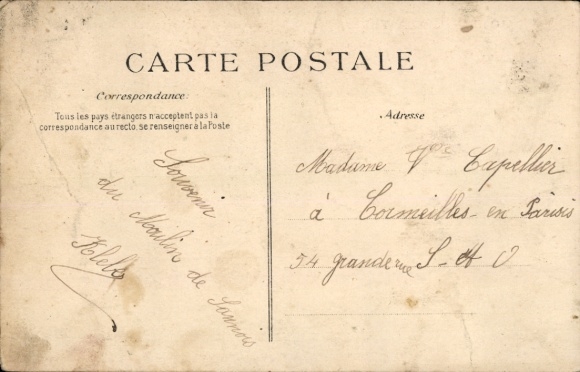 CARTE POSTALE
Correspondance
Tous les pays étrangers n'acceptent pas la
correspondance au recto, se renseigner à la Poste
Souvenir
du Moulin de Sannois
Adresse
Madame Vve Capellier
à Cormeilles-en Parisis
54 grande rue S-&-O